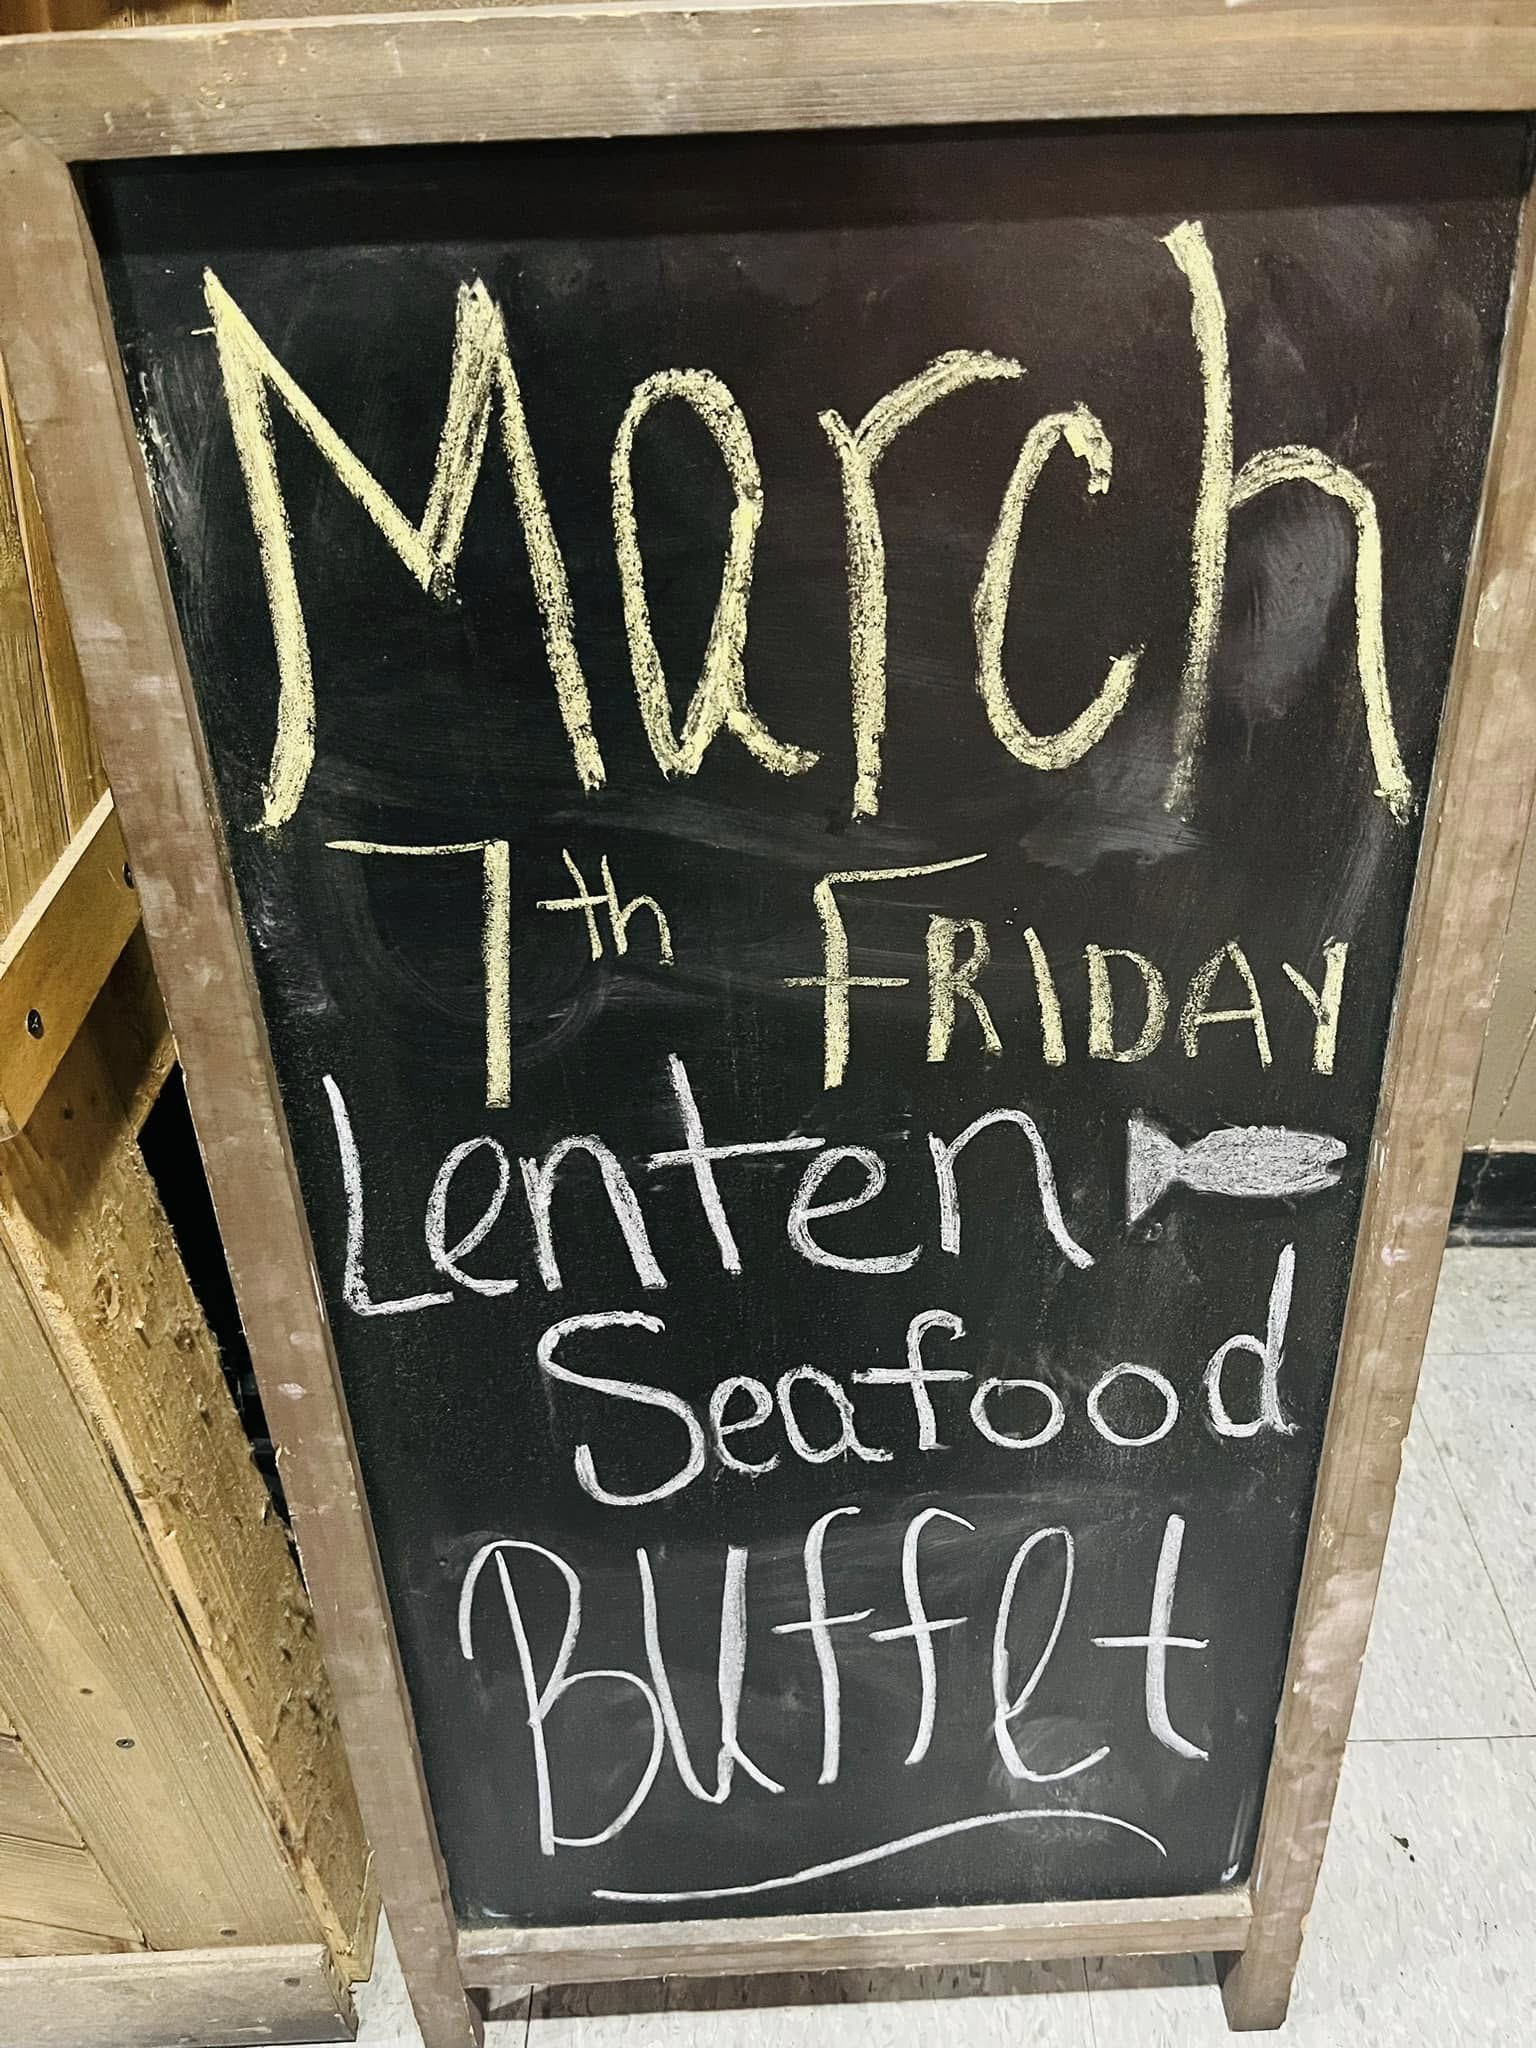 March
7th FRIDAY
Lenten
Seafood
Buffet